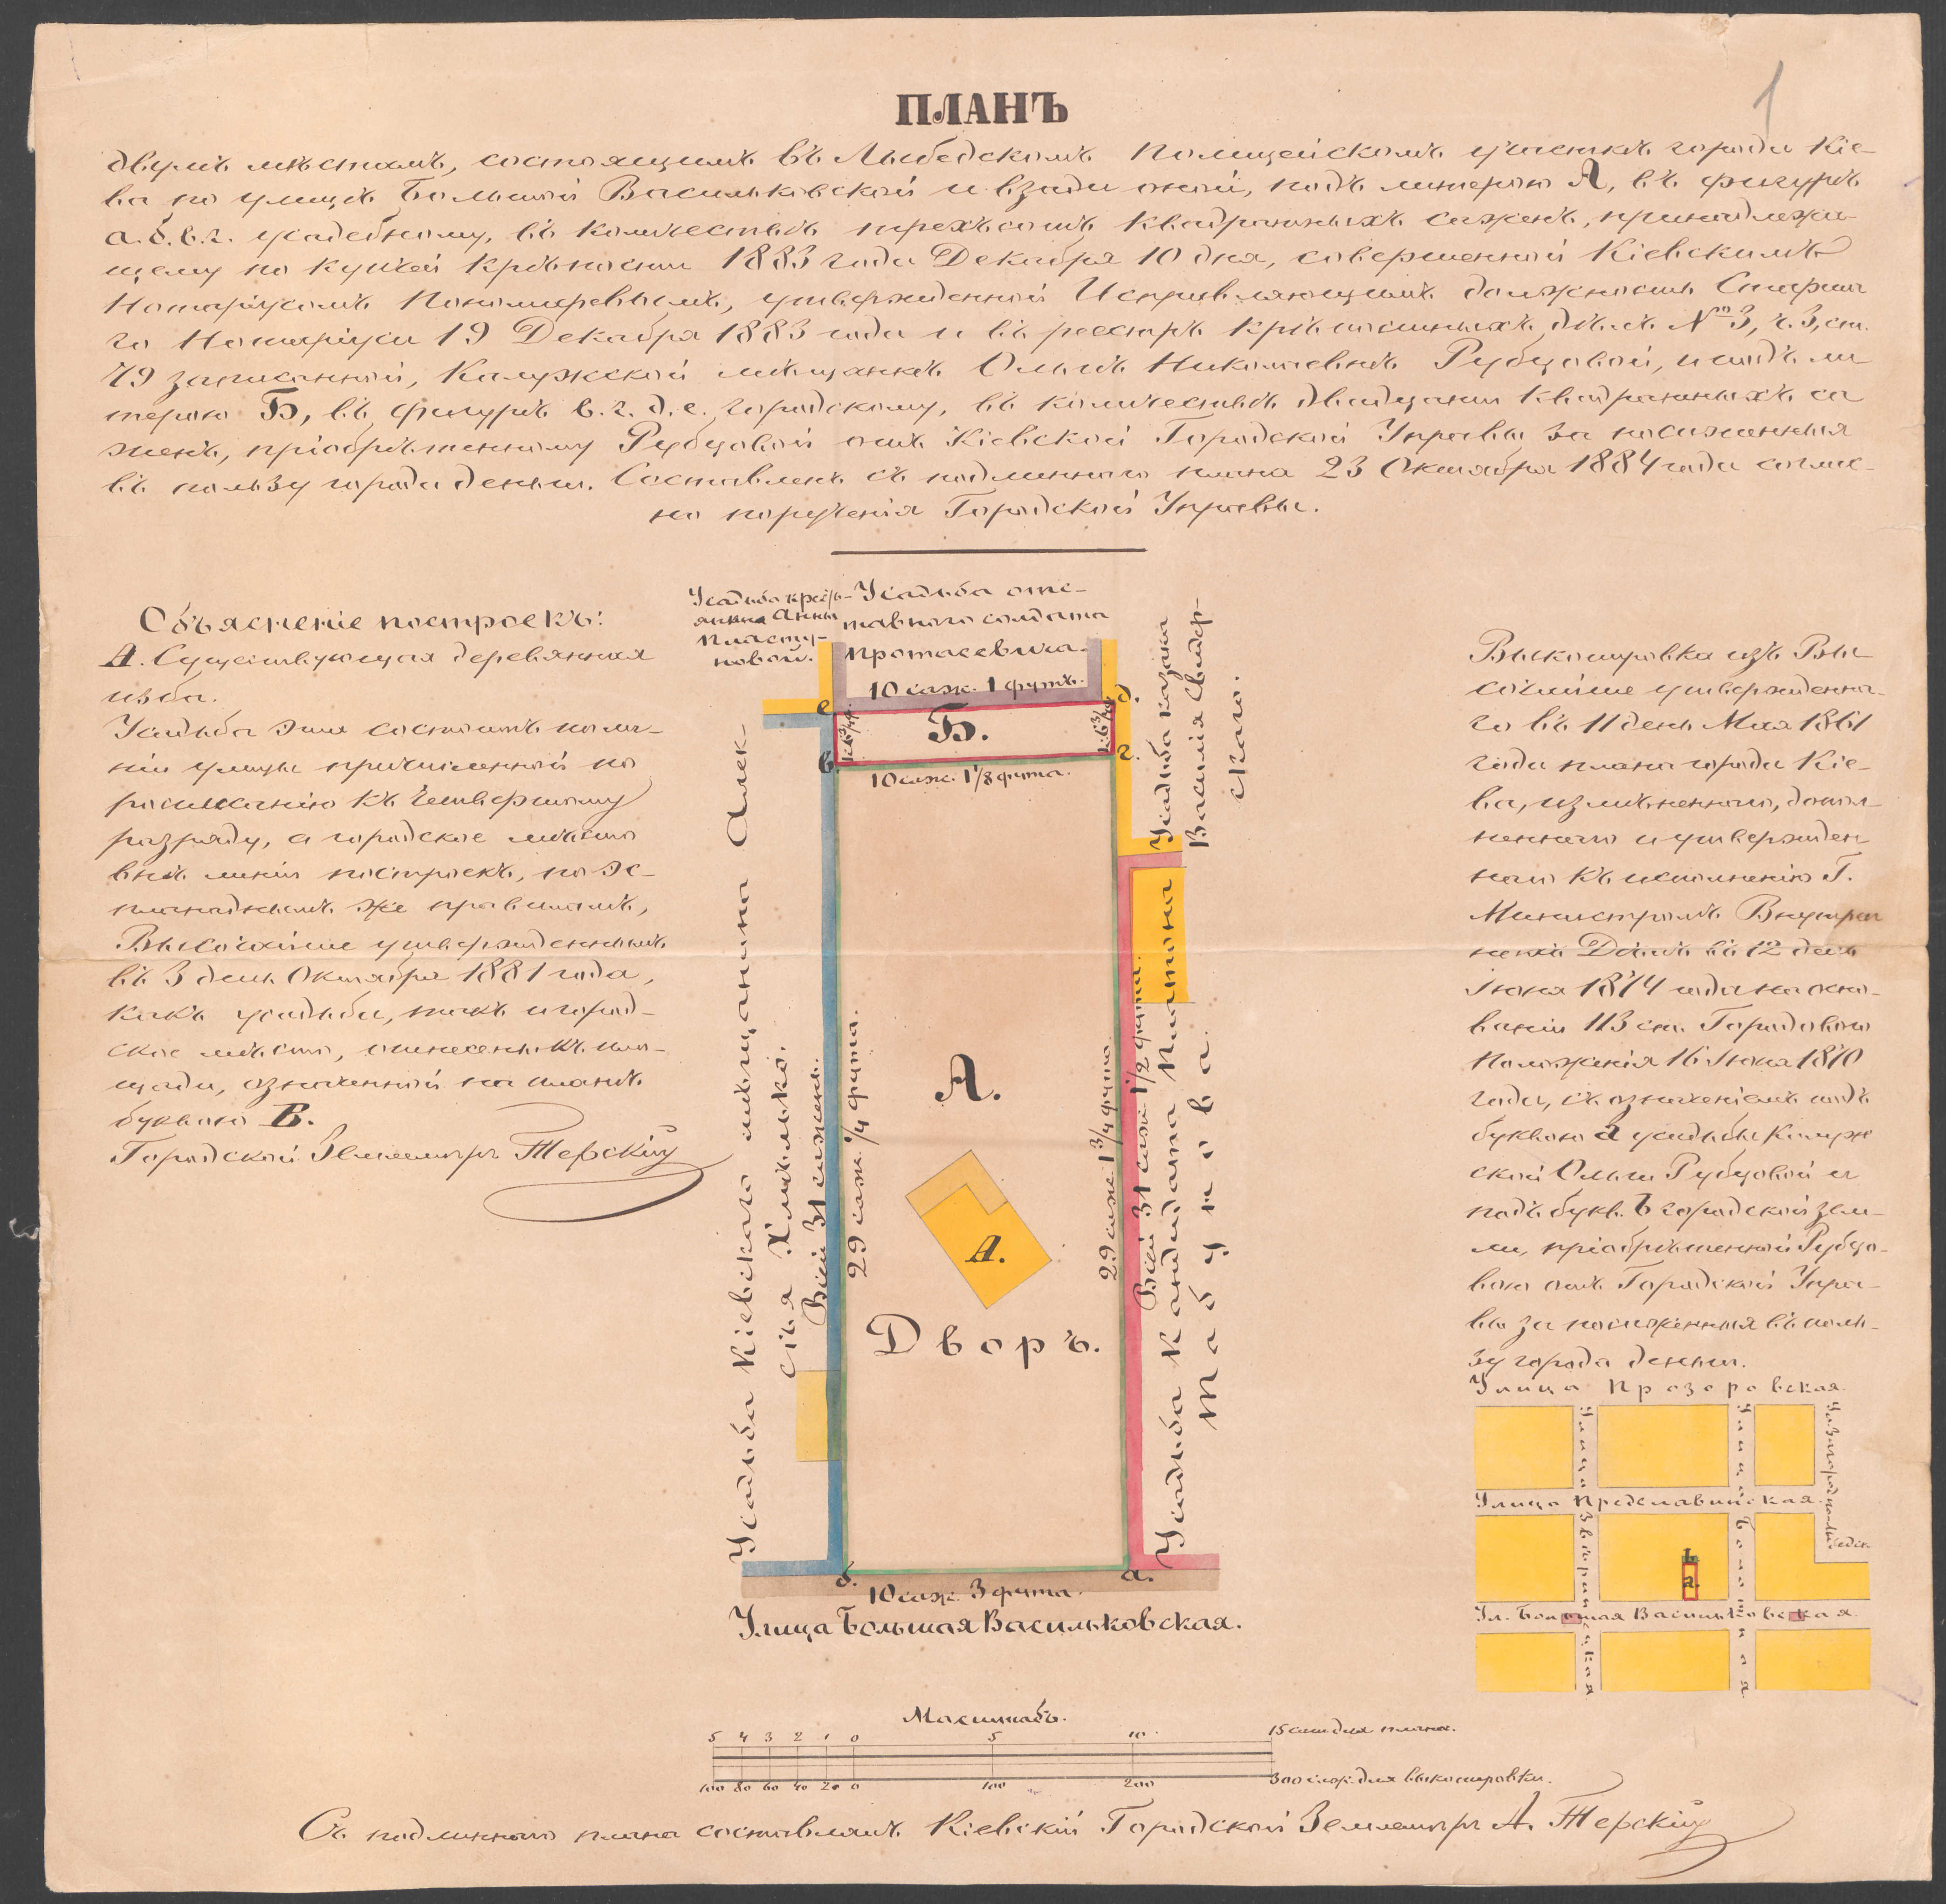 1
ПЛАНЪ
двумъ мѣстамъ, состоящимъ въ Лыбедскомъ Полицейскомъ участкѣ города Кіе-
ва по улицѣ Большой Васильковской и взади оной, подъ литерою А, въ фигурѣ
а.б.в.г. усадебному, въ количествѣ трехъсотъ квадратныхъ саженъ, принадлежа-
щему по купчей крѣпости 1883 года Декабря 10 дня, совершенной Кіевскимъ
Нотаріусомъ, утвержденной Исправляющимъ должность Старша
го Нотаріуса 19 Декабря 1883 года и въ реестръ крѣпостныхъ дѣлъ № 3, ч. 3, ст.
79 записанной, Калужской мѣщанкѣ Ольгѣ Николаевнѣ Рубцовой, и подъ ли-
терою Б, въ фигурѣ в.г.д.е. городскому, въ количествѣ двадцати квадратныхъ са
женъ, пріобрѣтенному Рубцовой отъ Кіевской Городской Управы за положенныя
въ пользу города деньги. Составленъ съ подлиннаго плана 23 Октября 1884 года соглас-
но порученія Городской Управы.
Объясненіе построекъ:
А. Существующая деревянная
изба.
Усадьба эта состоитъ по ли-
ніи улицы причисленной по
росписанію къ четвертому
разряду, а городское мѣсто
внѣ линіи построекъ, по эс-
планаднымъ же правиламъ,
Высочайше утвержденнымъ
въ 3 день Октября 1881 года,
какъ усадьба, такъ и город-
ское мѣсто, отнесены къ пло-
щади, означенной на планѣ
буквою В.
Городской Землемѣръ Терскій
Усадьба кресть-
янки Анны
Пласту-
новой.
Усадьба отс-
тавного солдата
Протасевича.
10 саж. 1 футъ.
е
д.
Б.
1с. 6 3/4 ф.
1с. 6 3/4 ф.
в.
г.
10 саж. 1 1/8 фута.
Усадьба казака
Василія Свидер-
скаго.
Усадьба Кіевскаго мѣщанина Алек-
сѣя Хмѣлько.
Всей 31 сажень.
29 саж. 1/4 фута.
29 саж. 1 3/4 фута.
Всей 31 саж. 1 1/2 фута.
Усадьба Кандидата Платона
Табунова.
А.
А.
Дворъ.
б.
а.
10 саж. 3 фута.
Улица Большая Васильковская.
Выкопировка изъ Вы-
сочайше утвержденна-
го въ 11 день Мая 1861
года плана города Кіе-
ва, измѣненнаго, допол-
неннаго и утвержден
наго къ исполненію Г.
Министромъ Внутрен
нихъ Дѣлъ въ 12 день
Іюня 1874 года на осно-
ваніи 113 ст. Городового
Положенія 16 Іюня 1870
года, съ означеніемъ подъ
буквою а усадьбы Калуж
ской Ольги Рубцовой и
подъ букв. Ь городской зем-
ли, пріобрѣтенной Рубцо-
вою отъ Городской Упра-
вы за положенныя въ поль-
зу города деньги.
Улица Прозоровская.
Улица Звѣринецкая
Улица Болотная
Улица Предславинская.
Ь
а.
Ул. Большая Васильковская.
Масштабъ.
5 4 3 2 1 0 5 10 15 саж. для плана.
100 80 60 40 20 0 100 200 300 саж. для выкопировки.
Съ подлиннаго плана составлялъ Кіевскій Городской Землемѣръ А. Терскій